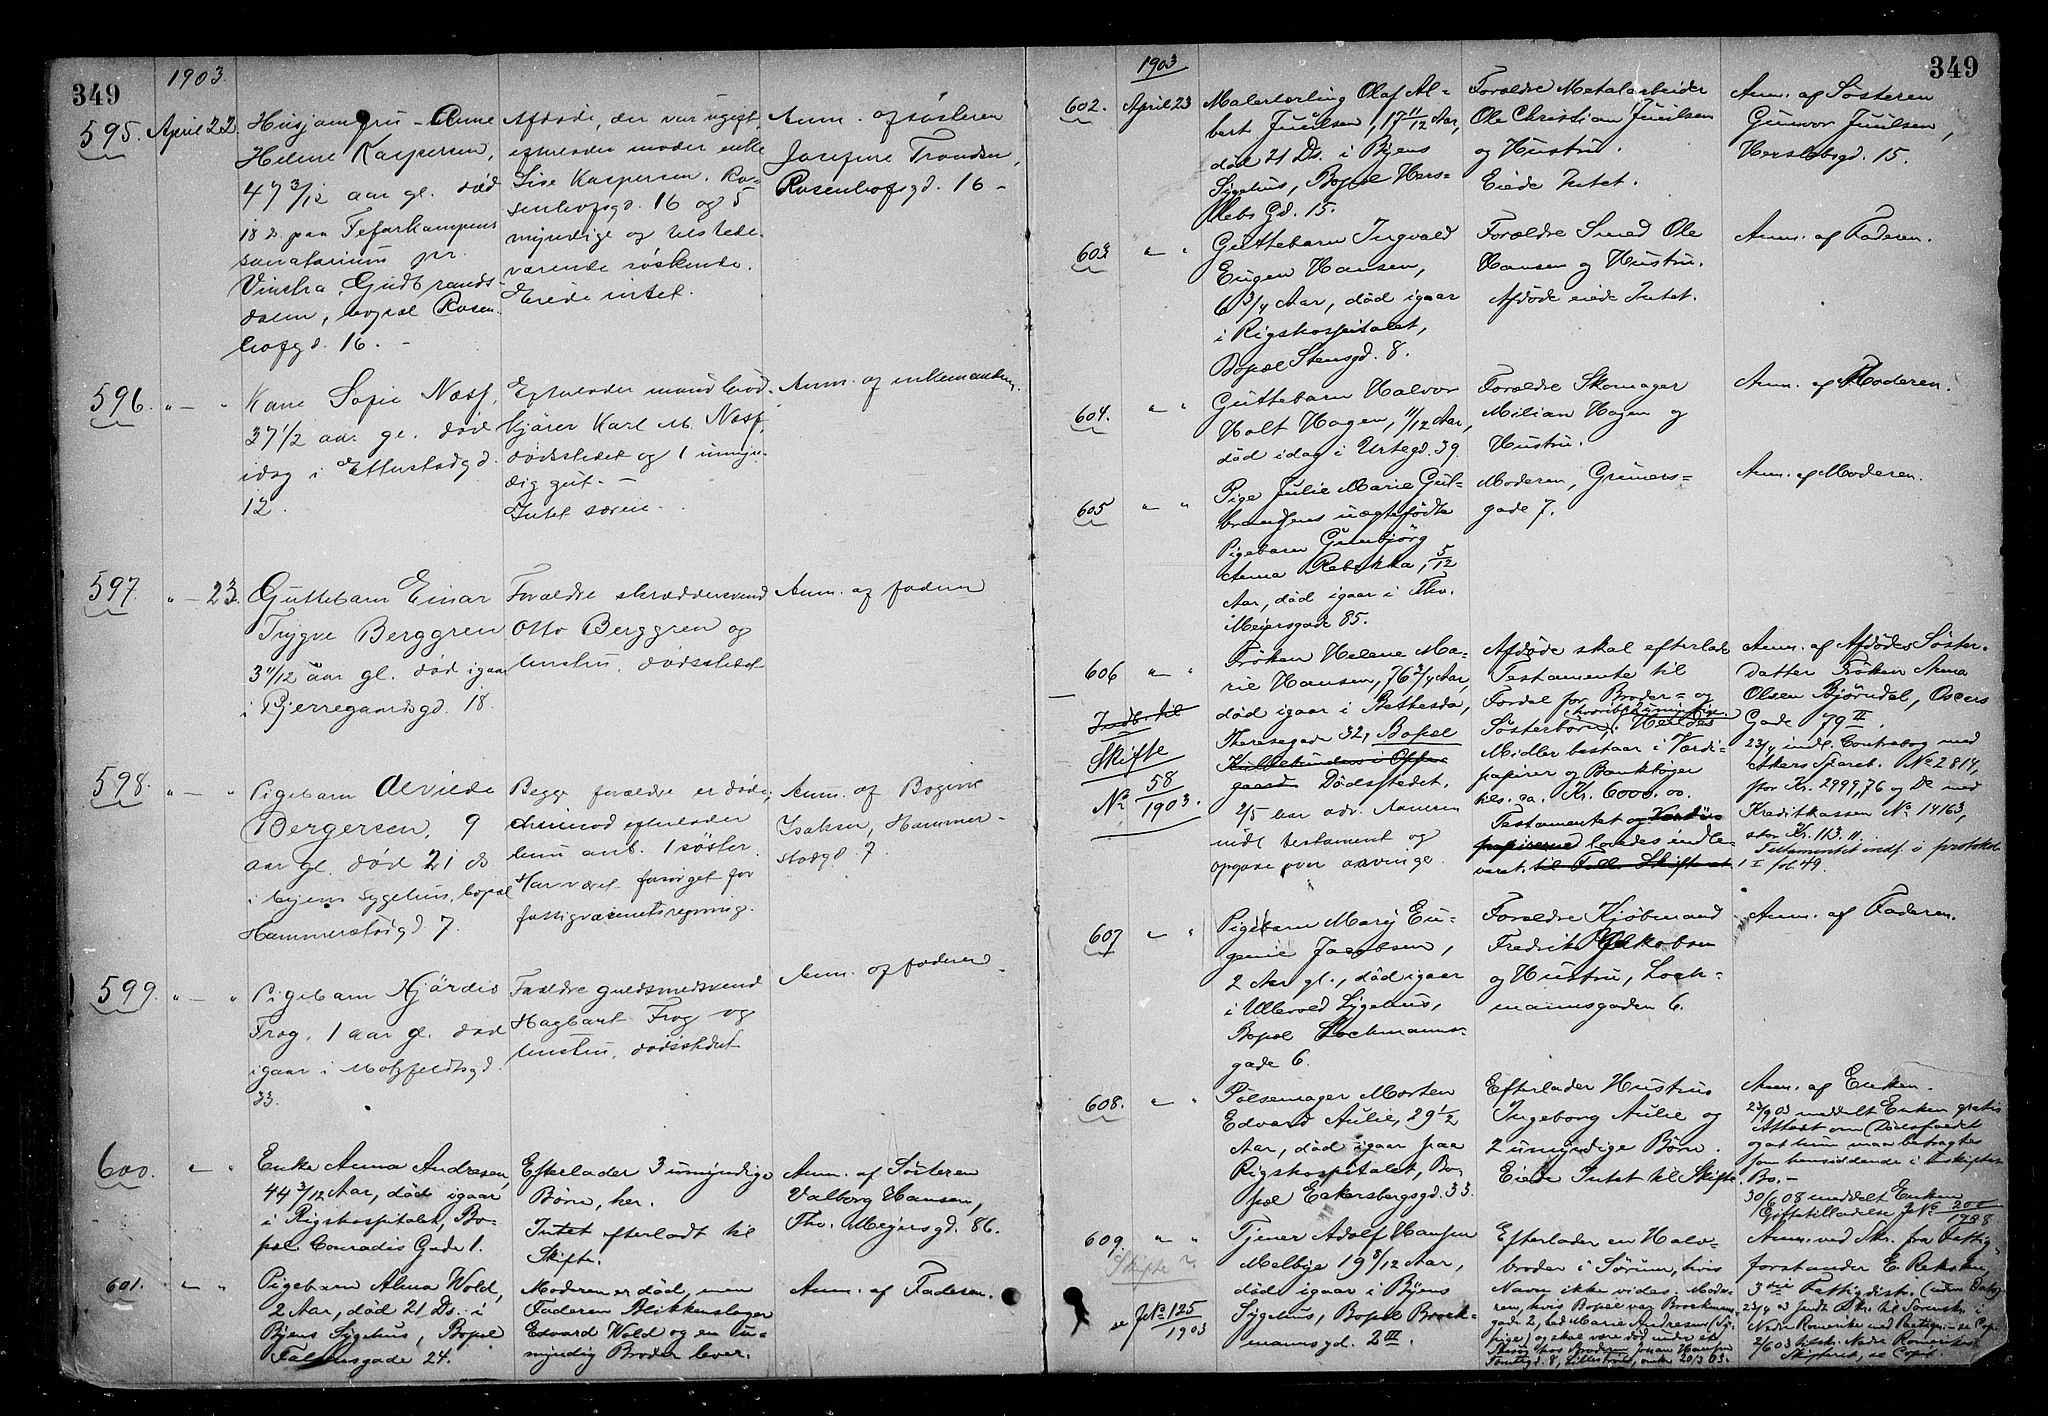 349
1903
595. April 22.
Husjomfru Anne
Helene Kaspersen,
47 3/12 aar gl. död
18 ds. paa Tefarkampens
sanatorium pr.
Vinstra, Gudbrands-
dalen, bopæl Rosen-
hofgd. 16. -
Afdöde, der var ugift,
efterlader moder enke
Lise Kaspersen, Ro-
senhofsgd. 16 og 5
myndige og tilstede-
værende söskende.
Eiede intet.
Anm. af sösteren
Josefine Trondsen,
Rosenhofsgd. 16 -
596. " - "
Kone Sofie Næss,
37 1/2 aar gl. död
idag i Etterstadgd.
12.
Efterlader mand bröd-
kjörer Karl M. Næss,
dödsstedet og 1 umyn-
dig gut. -
Intet særeie. -
Anm. af enkemanden.
597. " - 23.
Guttebarn Einar
Trygve Berggren
3 11/12 aar gl. död igaar
i Bjerregaardsgd. 18.
Forældre skræddersvend
Otto Berggren og
hustru, dödsstedet
Anm. af faderen
598. " - "
Pigebarn Alvilde
Bergersen, 9
aar gl. död 21 ds
i byens sygehus, bopæl
Hammerstadgd. 7.
Begge forældre er döde,
derimod efterlader
hun ant. 1 söster.
Har været forsörget for
fattigvæsenets regning.
Anm. af Bogine
Isaksen, Hammer-
stadgd. 7.
599. " - "
Pigebarn Hjördis
Frog, 1 aar gl. död
igaar i Motzfeldtsgd.
33.
Forældre guldsmedsvend
Hagbart Frog og
hustru, dödsstedet
Anm. af faderen
600. " "
Enke Anna Andresen,
44 3/12 Aar, död igaar
i Rigshospitalet, Bo-
pæl Conradis Gade 1.
Efterlader 3 umyndige
Börn, her.
Intet efterladt til
Skifte.
Anm. af Sösteren
Valborg Hansen,
Thv. Meyersgd. 86.
601. " "
Pigebarn Alma Wold,
2 Aar, död 21 Ds. i
Byens Sygehus, Bopæl
Falsensgade 24.
Moderen er död, men
Faderen Blikkenslager
Edvard Wold og en u-
myndig Broder lever.
Anm. af Faderen.
349
1903
602. April 23
Malerlærling Olaf Al-
bert Juulsen, 17 11/12 Aar,
död 21 Ds. i Byens
Sygehus, Bopæl Hers-
lebs Gd. 15.
Forældre Metalarbeider
Ole Christian Juulsen
og Hustru.
Eiede Intet.
Anm. af Sösteren
Gunvor Juulsen,
Herslebsgd. 15.
603 " "
Guttebarn Ingvald
Eugen Hansen,
6 3/4 Aar, död igaar
i Rigshospitalet,
Bopæl Stensgd. 8.
Forældre Smed Ole
Hansen og Hustru.
Afdöde eiede Intet.
Anm. af Faderen.
604. " "
Guttebarn Halvor
Holt Hagen, 11/12 Aar,
död idag i Urtegd. 39.
Forældre Skomager
Milian Hagen og
Hustru.
Anm. af Moderen.
605 " "
Pige Julie Marie Gul-
brandsens uægtefödte
Pigebarn Gunbjörg
Anna Rebekka, 5/12
Aar, död igaar i Thv.
Meiersgade 85.
Moderen, Grüners-
gade 7.
Anm. af Moderen.
606 " "
Indb. til
Skifte
No. 58/1903.
Fröken Helene Ma-
rie Hansen, 76 3/4 Aar,
död igaar i Bethesda,
Theresegade 32, Bopæl
Dödsstedet.
2/5
testament og
opgave over arvinge.
Afdöde skal efterlade
Testamente til
Fordel for Broder- og
Sösterbörn, hvoriblandt umyndige.
Midler bestaar i Værdi-
papirer og Bankböger
tils. ca. Kr. 6000.00.
Testamentet og Værdi-
papirerne lovedes indle-
veret. til Skifteret
Anm. af Afdödes Söster-
datter Fröken Anna
Olsen Björndal, Oscars
Gade 79 II.
23/4 indl. Contrabog med
Akers Spareb. No 2814,
stor Kr. 2999,76 og Do med
Kreditkassen No 14163,
stor Kr. 113.11.
Testamentet indf. i protokol
I fol. 49.
607 " "
Pigebarn Mary Eu-
genie Jacobsen,
2 Aar gl., död igaar
i Ullevold Sygehus,
Bopæl Lochmanns-
gade 6.
Forældre Kjöbmand
Fredrik Jakobsen
og Hustru, Loch-
mannsgaden 6.
Anm. af Faderen.
608. " "
Pölsemager Morten
Edvard Aulie, 29 1/2
Aar, död igaar paa
Rigshospitalet, Bo-
pæl Eckersbergsgd. 33.
Efterlader Hustru
Ingeborg Aulie og
2 umyndige Börn.
Eiede Intet til Skifte.
Anm. af Enken.
23/4 03 meddelt Enken gratis
Attest om Dödsfaldet
og at hun maa betragtes
som hensiddende i uskiftet
Bo. -
30/6 08 meddelt Enken
Giftetilladelse J No 200/1908
609. " "
Skifte ?
se J No 125/1903
Tjener Adolf Hansen
Melbye 19 8/12 Aar,
död igaar i Byens
Sygehus, Bopæl Brock-
mannsgd. 2 III.
Efterlader en Halv-
broder i Sörum, hvis
Navn ikke vides. Mode-
ren, hvis Bopæl var Brockmans-
gade 2, hed Marie Andresen (Sy-
pige) og skal være död under et
Besög hos Broderen Johan Hansen
8, Lilleström, enke 20/3 03.
Anm. ved Skr. fra Fattig-
forstander E. Reksten,
3die Fattigdistr. (uden Dato)
23/4 03 Indb. Skr. til Sorenskr. i
Nedre Romerike med Begjær. - se Copi
2/6 03 tilskr. Nedre Romerikes
Skifteret, se Copi.